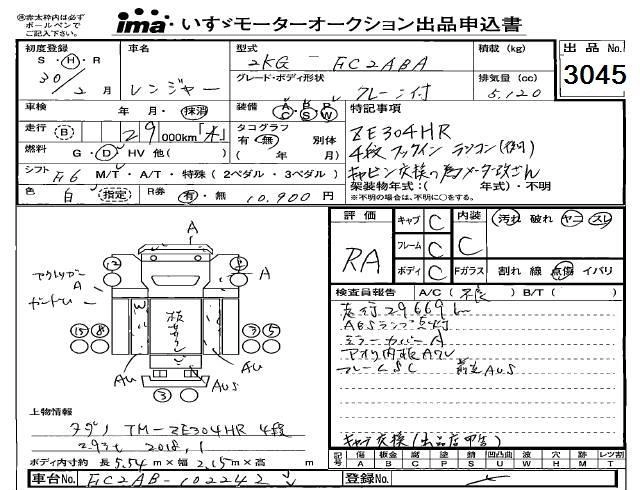 ㊟赤太枠内は必ず
ボールペンで
ご記入下さい。
ima いすゞモーターオークション出品申込書
初度登録 S・H・R 30/2月
車名 レンジャー
型式 2KG - FC2ABA
積載(kg)
グレード・ボディ形状 クレーン付
排気量(cc) 5,120
出品No. 3045
車検 年 月・抹消
装備 A B P C S W
特記事項
走行 B 29,000km「水」
タコグラフ 有・無 別体 ( 年 月)
ZE304HR
燃料 G・D・HV 他( )
4段 フックイン ラジコン
シフト F6 M/T・A/T・特殊(2ペダル・3ペダル)
キャビン交換の為メーター改ざん
架装物年式:( 年式)・不明
※不明の場合は、不明に○をする。
色 白 指定 R券 有・無 10,900円
評価 RA
キャブ C
フレーム C
ボディ C
内装 C
汚れ 破れ ヤニ スレ
Fガラス 割れ 線 点傷 イバリ
検査員報告 A/C(不良) B/T( )
走行29669km
ABSランプ点灯
ミラーカバーA
アオリ内板Aワレ
フレームSC AUS
キャブ交換(出品店申告)
A
A
AU
AUS
板
W
上物情報
タダノ TM-ZE304HR 4段
2.93t 2018.1
ボディ内寸約 長5.54m×幅2.15m×高 m
記号 傷A 板金B 腐C 塗P 錆S 凹凸曲U 波W 穴H 跡M レツ割T
車台No. FC2AB-102242
登録No.